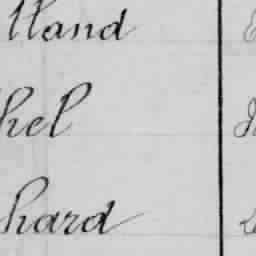 tland
hel
hard